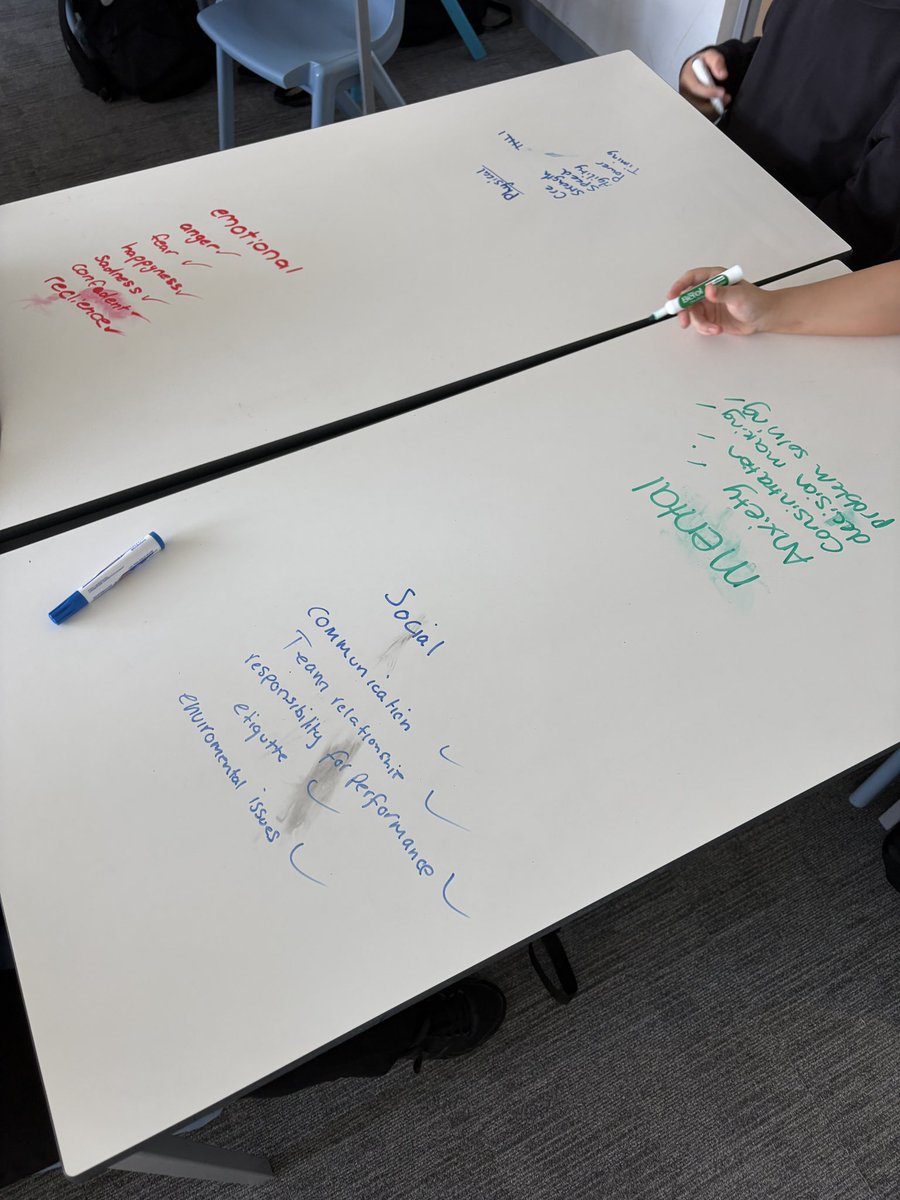 emotional
anger
fear
happyness
sadness
confedent
reclience
Physical
Cre
Strength
Speed
Agility
Power
Timing
mental
Anxiety
Consintration
decision making
problem solving
Social
communication
Team relationship
responsibility for performance
etiqutte
enviromental issues